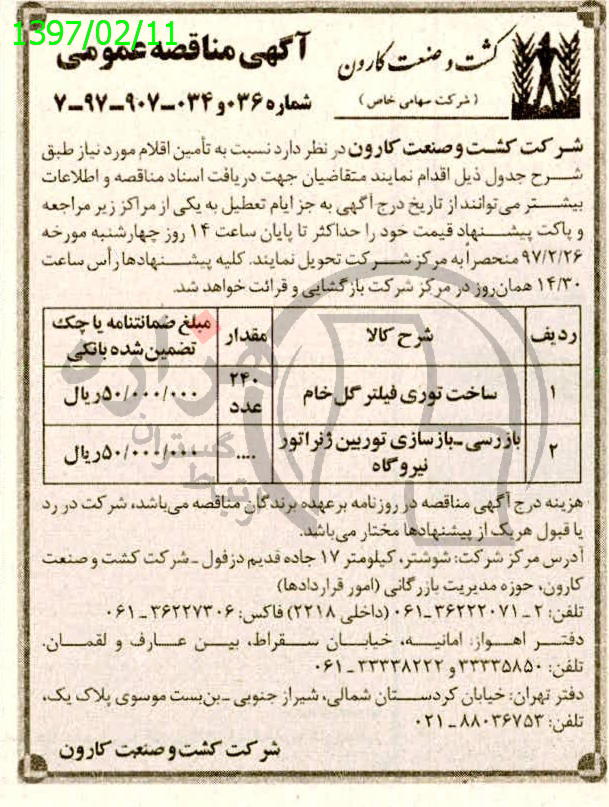 1397/02/11
کشت و صنعت کارون
(شرکت سهامی خاص)
آگهی مناقصه عمومی
شماره ۰۳۶ و ۰۳۴-۹۰۷-۹۷-۷
شرکت کشت و صنعت کارون در نظر دارد نسبت به تأمین اقلام مورد نیاز طبق
شرح جدول ذیل اقدام نمایند متقاضیان جهت دریافت اسناد مناقصه و اطلاعات
بیشتر می‌توانند از تاریخ درج آگهی به جز ایام تعطیل به یکی از مراکز زیر مراجعه
و پاکت پیشنهاد قیمت خود را حداکثر تا پایان ساعت ۱۴ روز چهارشنبه مورخه
۹۷/۲/۲۶ منحصراً به مرکز شرکت تحویل نمایند. کلیه پیشنهادها رأس ساعت
۱۴/۳۰ همان‌روز در مرکز شرکت بازگشایی و قرائت خواهد شد.
ردیف شرح کالا مقدار مبلغ ضمانتنامه یا چک تضمین شده بانکی
۱ ساخت توری فیلتر گل خام ۲۴۰ عدد ۵۰/۰۰۰/۰۰۰ ریال
۲ بازرسی-بازسازی توربین ژنراتور نیروگاه .... ۵۰/۰۰۰/۰۰۰ ریال
هزینه درج آگهی مناقصه در روزنامه برعهده برندگان مناقصه می‌باشد، شرکت در رد
یا قبول هریک از پیشنهادها مختار می‌باشد.
آدرس مرکز شرکت: شوشتر، کیلومتر ۱۷ جاده قدیم دزفول - شرکت کشت و صنعت
کارون، حوزه مدیریت بازرگانی (امور قراردادها)
تلفن: ۲-۳۶۲۲۲۰۷۱-۰۶۱ (داخلی ۲۲۱۸) فاکس: ۳۶۲۲۷۳۰۶-۰۶۱
دفتر اهواز: امانیه، خیابان سقراط، بین عارف و لقمان.
تلفن: ۳۳۳۳۵۸۵۰ و ۳۳۳۳۸۲۲۲-۰۶۱
دفتر تهران: خیابان کردستان شمالی، شیراز جنوبی - بن‌بست موسوی پلاک یک،
تلفن: ۸۸۰۳۶۷۵۳-۰۲۱
شرکت کشت و صنعت کارون